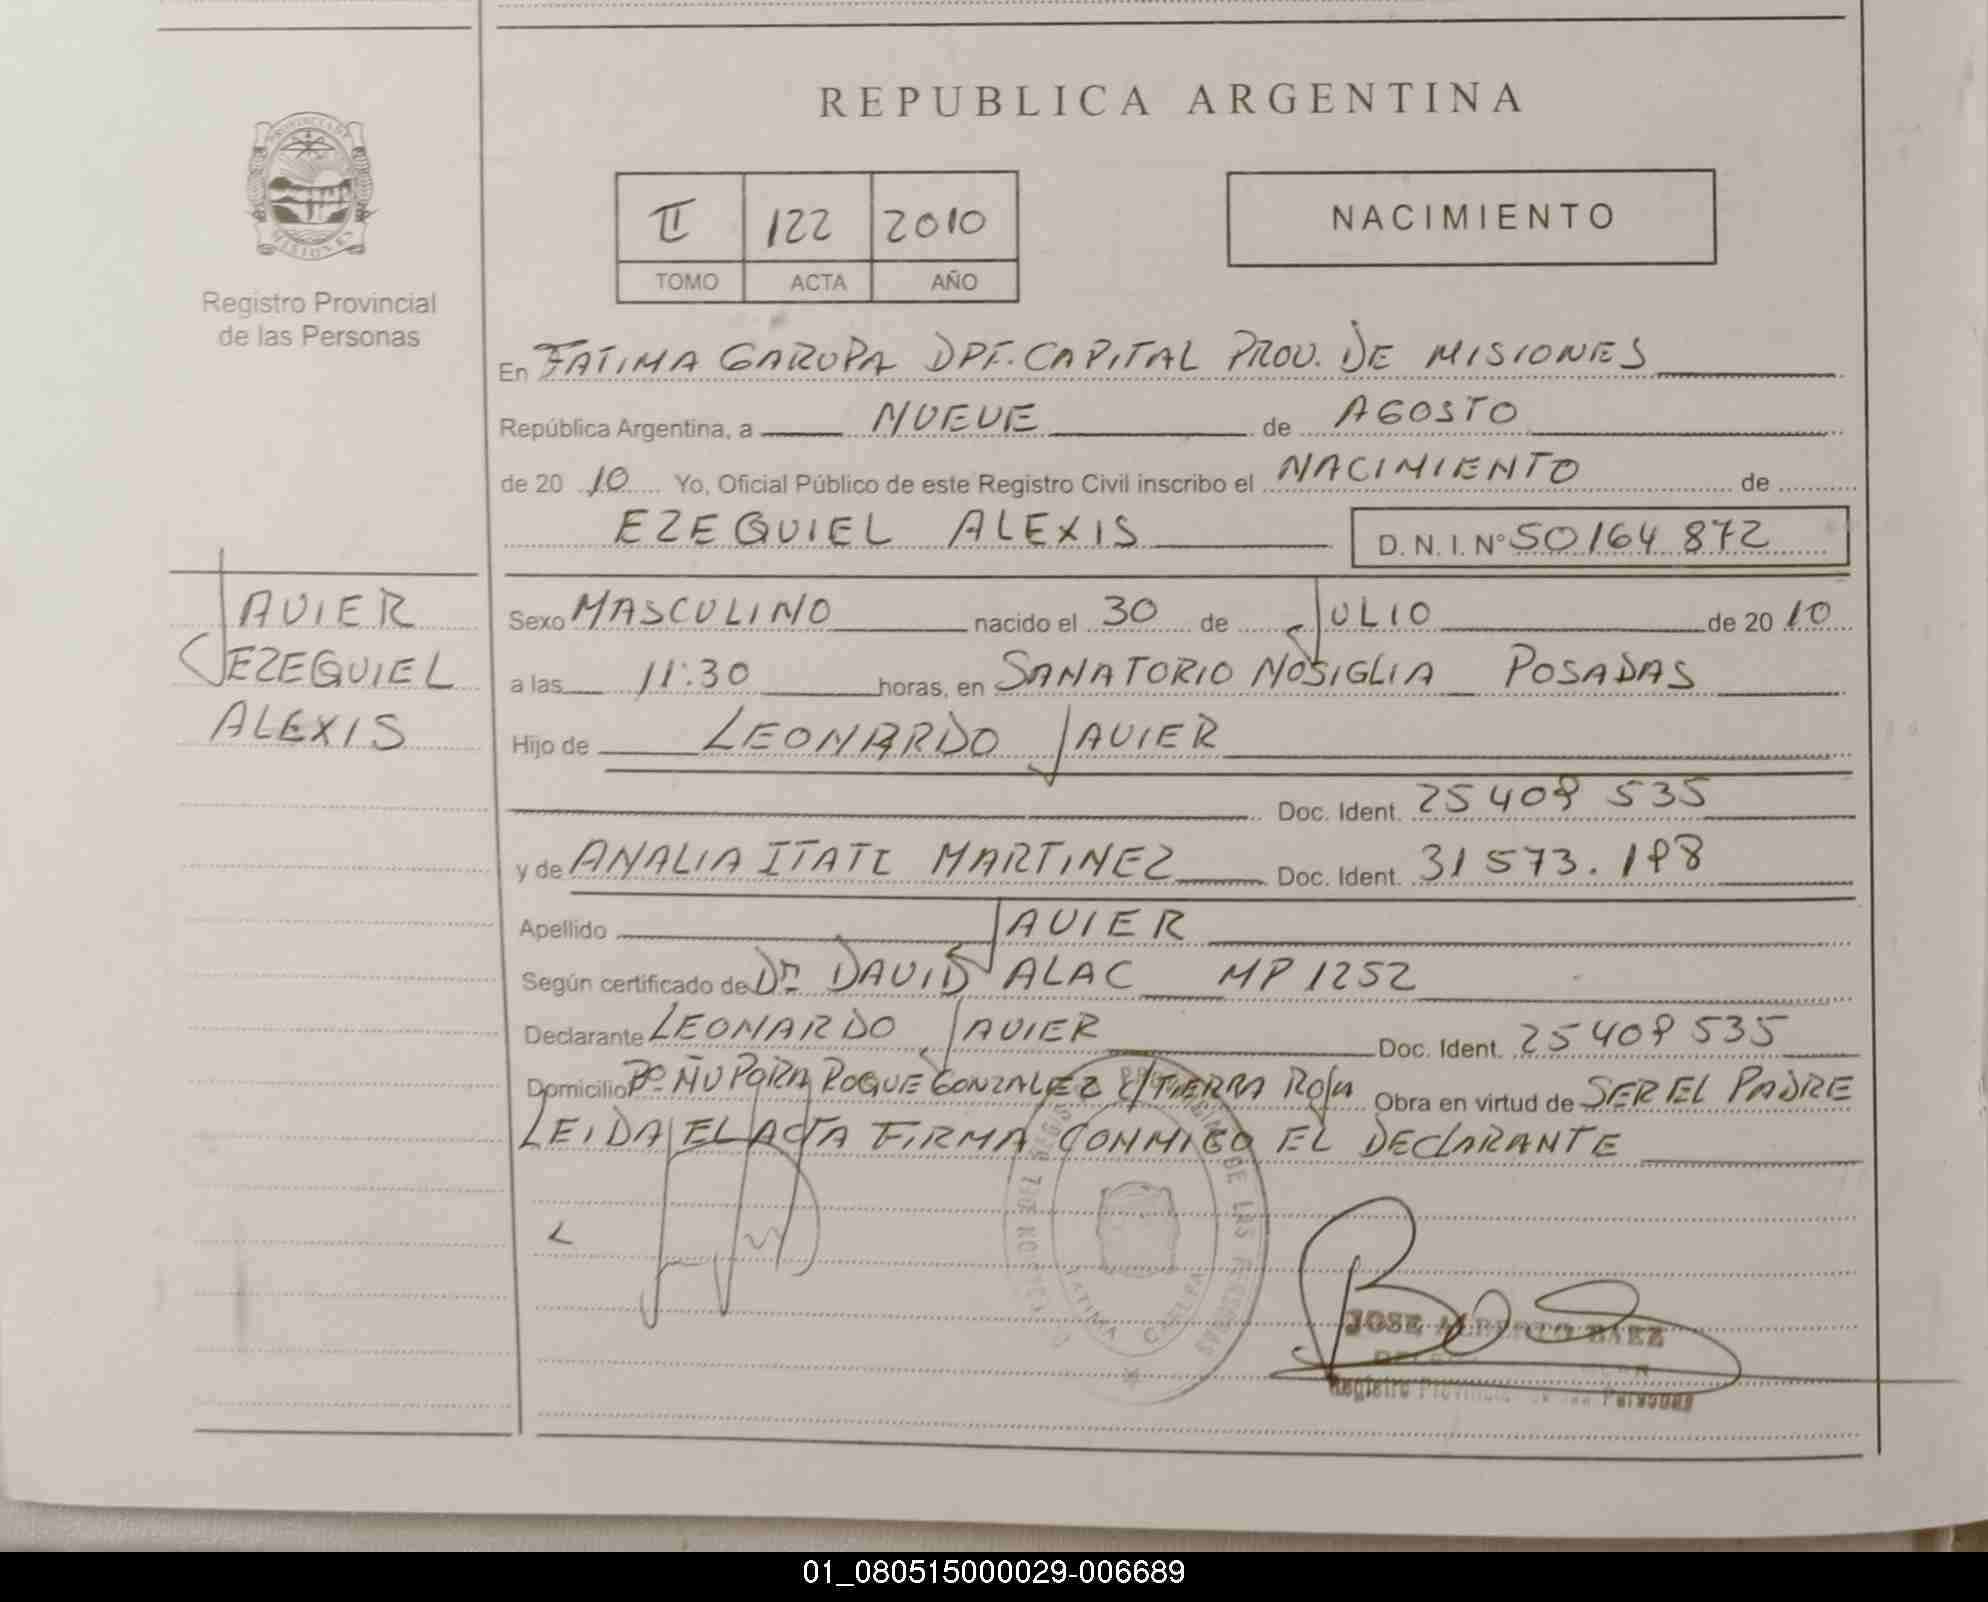 REPUBLICA ARGENTINA
PROVINCIA DE
MISIONES
Registro Provincial
de las Personas
II 122 2010
TOMO ACTA AÑO
NACIMIENTO
En FATIMA GARUPA DPT. CAPITAL PROV. DE MISIONES
República Argentina, a NUEVE de AGOSTO
de 20 10 Yo, Oficial Público de este Registro Civil inscribo el NACIMIENTO de
EZEQUIEL ALEXIS D. N. I. N° 50164 872
JAVIER
EZEQUIEL
ALEXIS
Sexo MASCULINO nacido el 30 de JULIO de 20 10
a las 11:30 horas, en SANATORIO NOSIGLIA POSADAS
Hijo de LEONARDO JAVIER
Doc. Ident. 25 409 535
y de ANALIA ITATI MARTINEZ Doc. Ident. 31 573. 198
Apellido JAVIER
Según certificado de Dr. DAVID ALAC MP 1252
Declarante LEONARDO JAVIER Doc. Ident. 25 409 535
Domicilio Bº ÑU PORA ROQUE GONZALEZ C/ TIERRA ROJA Obra en virtud de SER EL PADRE
LEIDA EL ACTA FIRMA CONMIGO EL DECLARANTE
DE LAS PERSONAS
FATIMA
JOSE ALBERTO BAEZ
Registro Provincial de las Personas
01_080515000029-006689